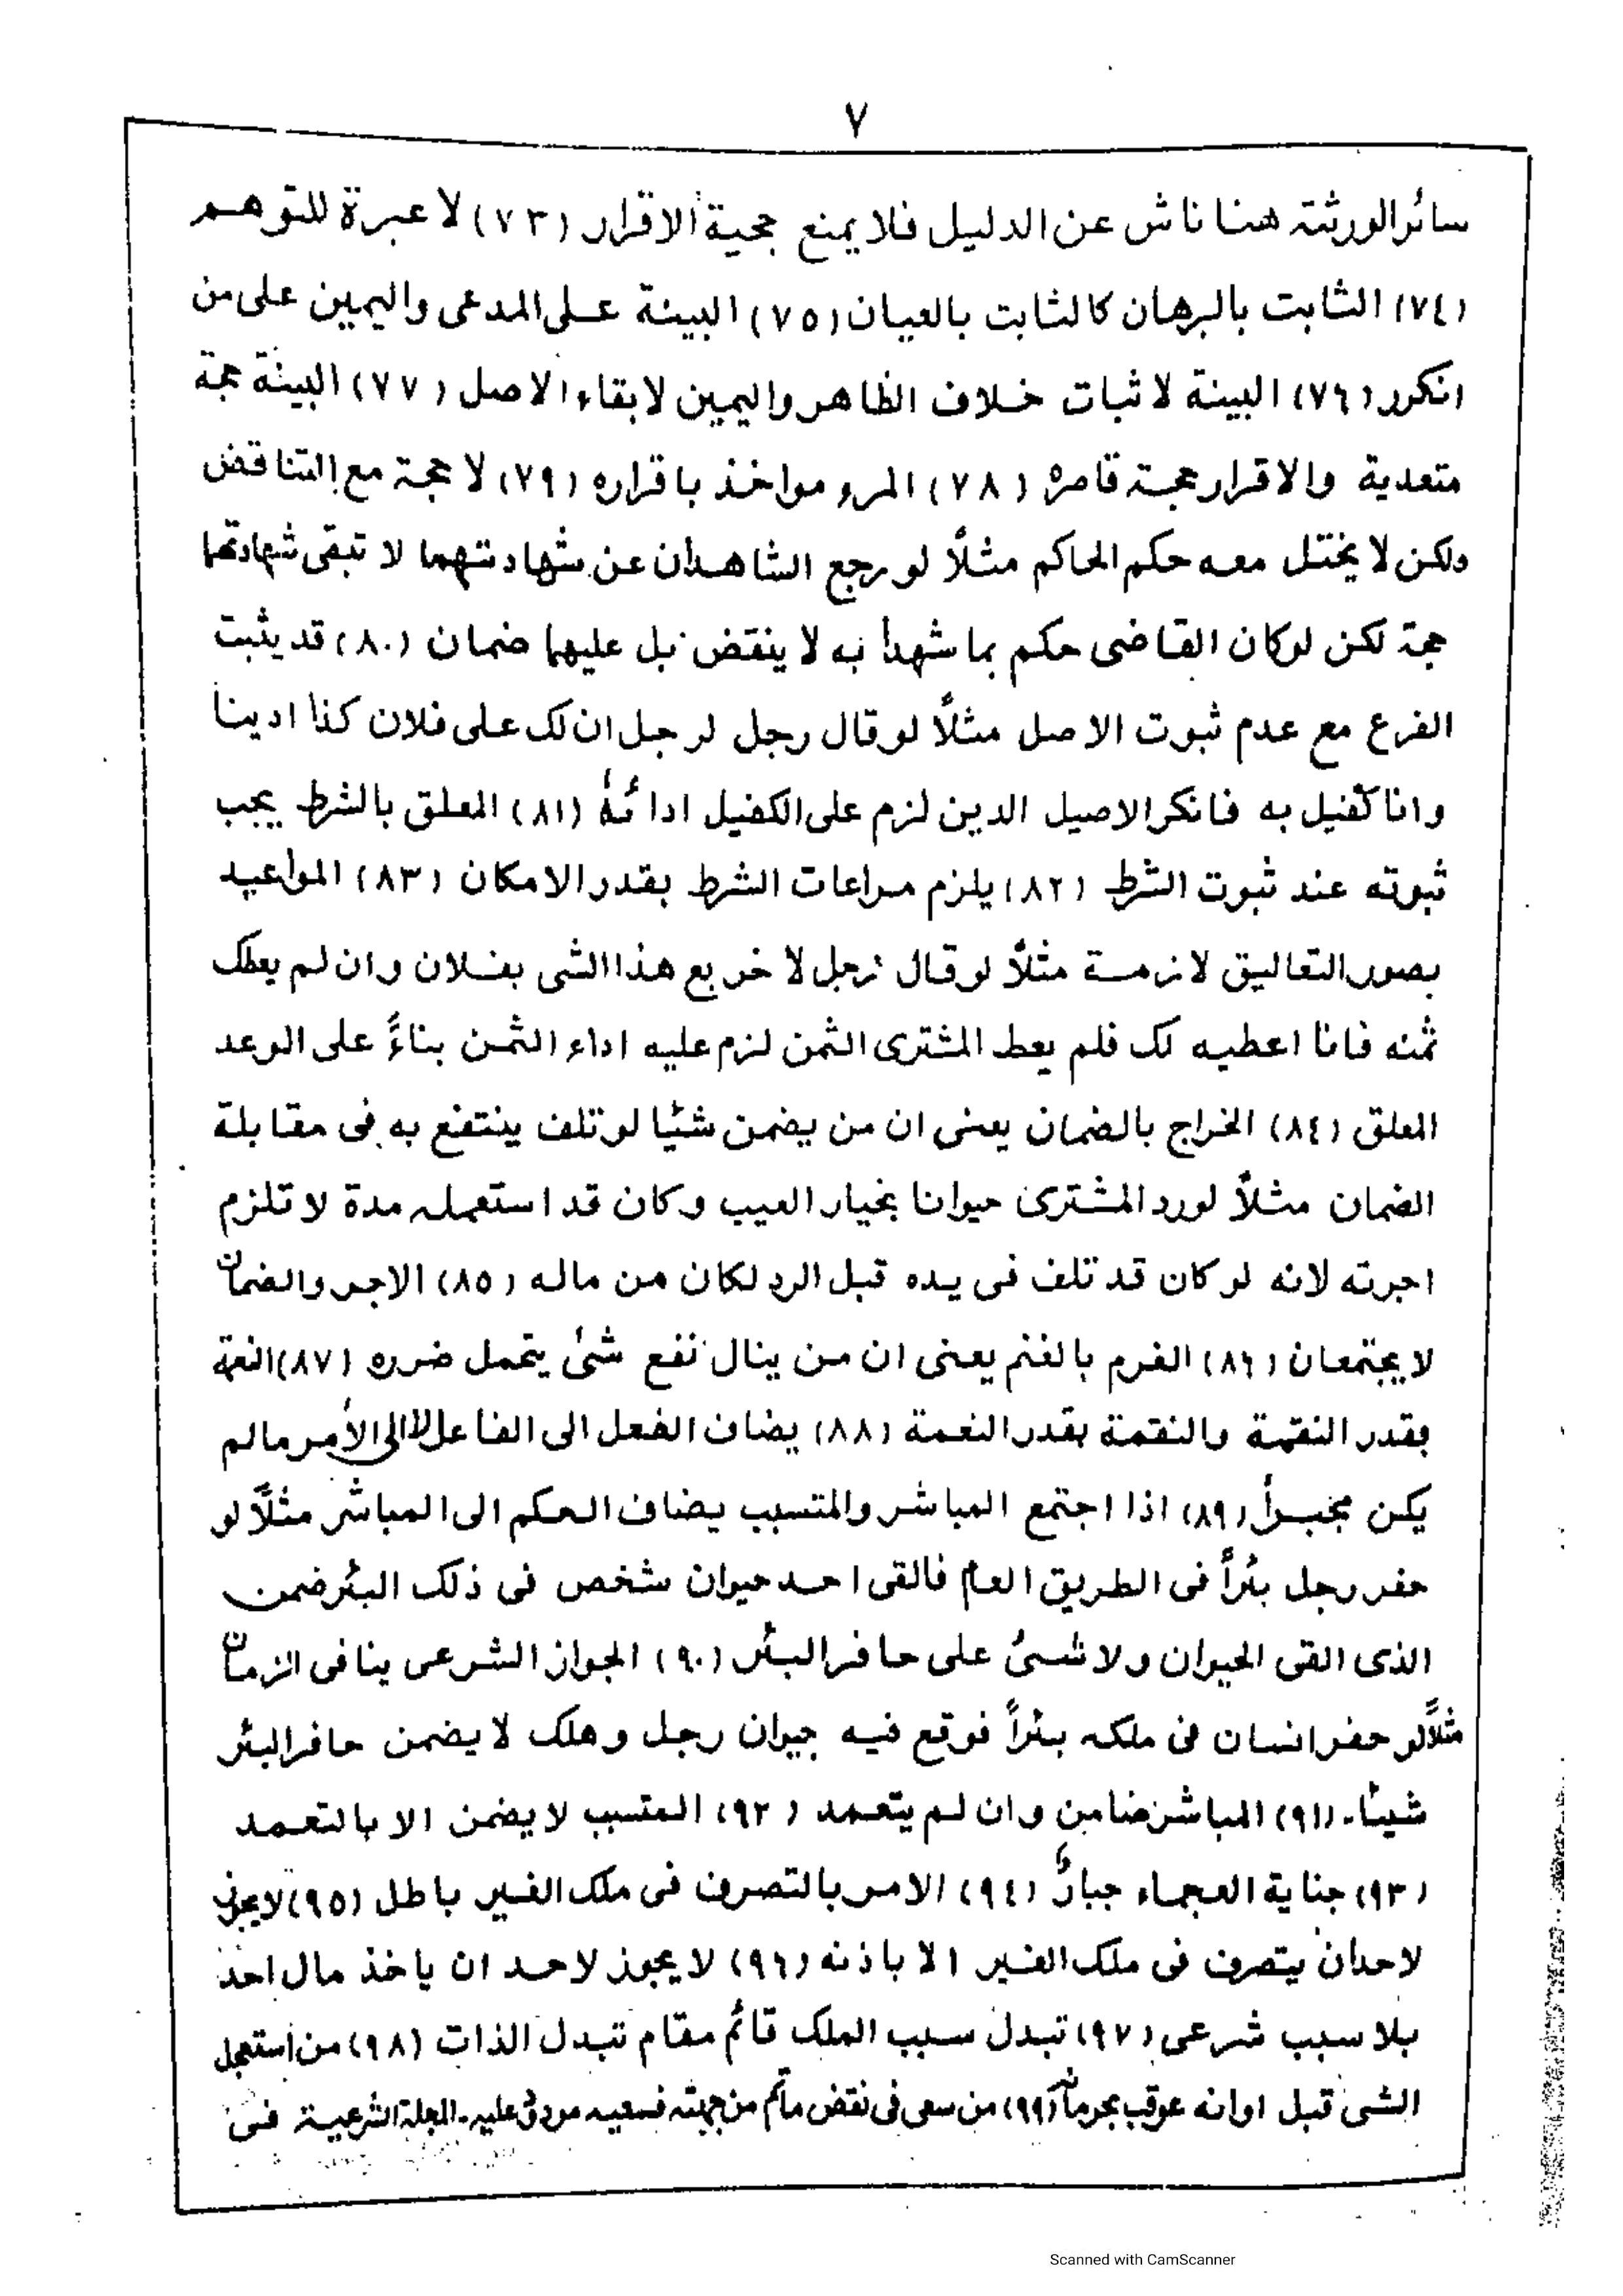 ٧
سائر الورثة هنا ناش عن الدليل فلا يمنع حجية الاقرار (٧٣) لا عبرة للتوهم
(٧٤) الثابت بالبرهان كالثابت بالعيان (٧٥) البينة على المدعى واليمين على من
انكر (٧٦) البينة لاثبات خلاف الظاهر واليمين لابقاء الاصل (٧٧) البينة حجة
متعدية والاقرار حجة قاصرة (٧٨) المرء مواخذ باقراره (٧٩) لا حجة مع التناقض
ولكن لا يختل معه حكم الحاكم مثلاً لو رجع الشاهدان عن شهادتهما لا تبقى شهادتهما
حجة لكن لو كان القاضى حكم بما شهدا به لا ينقض بل عليهما ضمان (٨٠) قد يثبت
الفرع مع عدم ثبوت الاصل مثلاً لو قال رجل لرجل ان لك على فلان كذا ادينا
وانا كفيل به فانكر الاصيل الدين لزم على الكفيل ادائهٗ (٨١) المعلق بالشرط يجب
ثبوته عند ثبوت الشرط (٨٢) يلزم مراعات الشرط بقدر الامكان (٨٣) المواعيد
بصور التعاليق لازمة مثلاً لو قال رجل لاخر بع هذا الشى بفلان وان لم يعطك
ثمنه فانا اعطيه لك فلم يعط المشترى الثمن لزم عليه اداء الثمن بناءً على الوعد
المعلق (٨٤) الخراج بالضمان يعنى ان من يضمن شئيا لو تلف ينتفع به فى مقابلة
الضمان مثلاً لو رد المشترى حيوانا بخيار العيب وكان قد استعمله مدة لا تلزم
اجرته لانه لو كان قد تلف فى يده قبل الرد لكان من ماله (٨٥) الاجر والضمان
لا يجتمعان (٨٦) الغرم بالغنم يعنى ان من ينال نفع شئ يتحمل ضرره (٨٧) النعمة
بقدر النقمة والنقمة بقدر النعمة (٨٨) يضاف الفعل الى الفاعل لا الى الأمر مالم
يكن مجبراً (٨٩) اذا اجتمع المباشر والمتسبب يضاف الحكم الى المباشر مثلاً لو
حفر رجل بئراً فى الطريق العام فالقى احد حيوان شخص فى ذلك البئر ضمن
الذى القى الحيوان ولا شئ على حافر البئر (٩٠) الجواز الشرعى ينافى الزمان
مثلاً لو حفر انسان فى ملكه بئراً فوقع فيه حيوان رجل وهلك لا يضمن حافر البئر
شيئا۔ (٩١) المباشر ضامن وان لم يتعمد (٩٢) المتسبب لا يضمن الا بالتعمد
(٩٣) جناية العجماء جبارٌ (٩٤) الامر بالتصرف فى ملك الغير باطل (٩٥) لا يجوز
لاحد ان يتصرف فى ملك الغير الا باذنه (٩٦) لا يجوز لاحد ان ياخذ مال احد
بلا سبب شرعى (٩٧) تبدل سبب الملك قائم مقام تبدل الذات (٩٨) من استعجل
الشئ قبل اوانه عوقب بحرمانه (٩٩) من سعى فى نقض ماتم من جهته فسعيه مردود عليه۔ المجلة الشرعية فى
Scanned with CamScanner